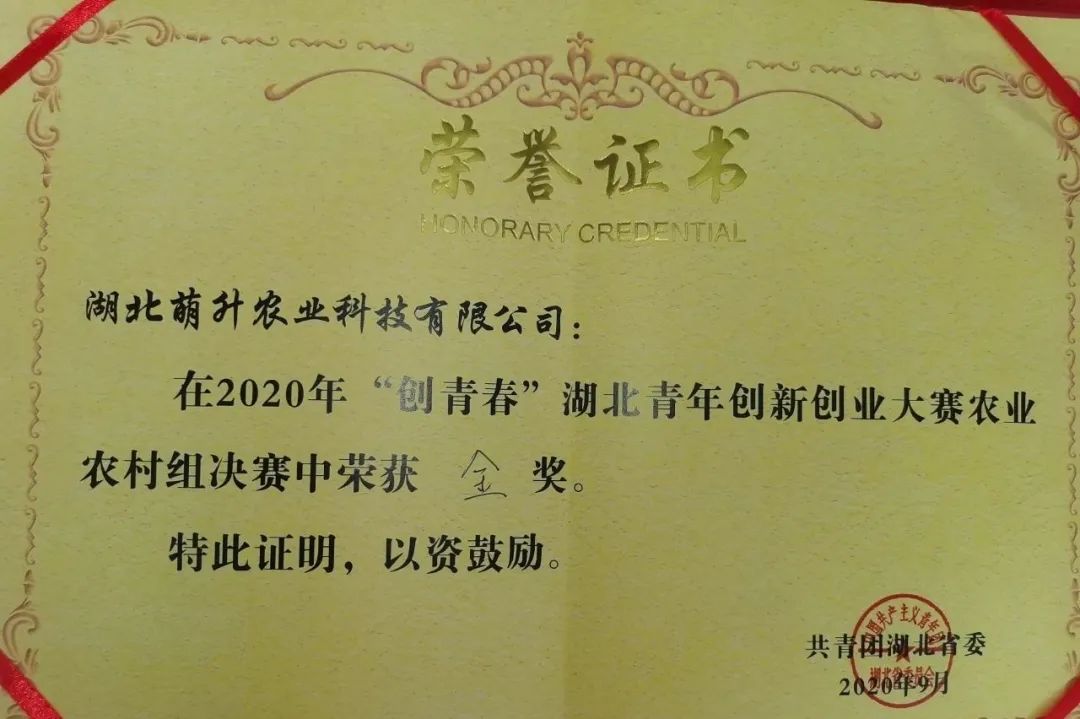 荣誉证书
HONORARY CREDENTIAL
湖北萌升农业科技有限公司：
在2020年“创青春”湖北青年创新创业大赛农业
农村组决赛中荣获 金 奖。
特此证明，以资鼓励。
共青团湖北省委
2020年9月
湖北省委员会